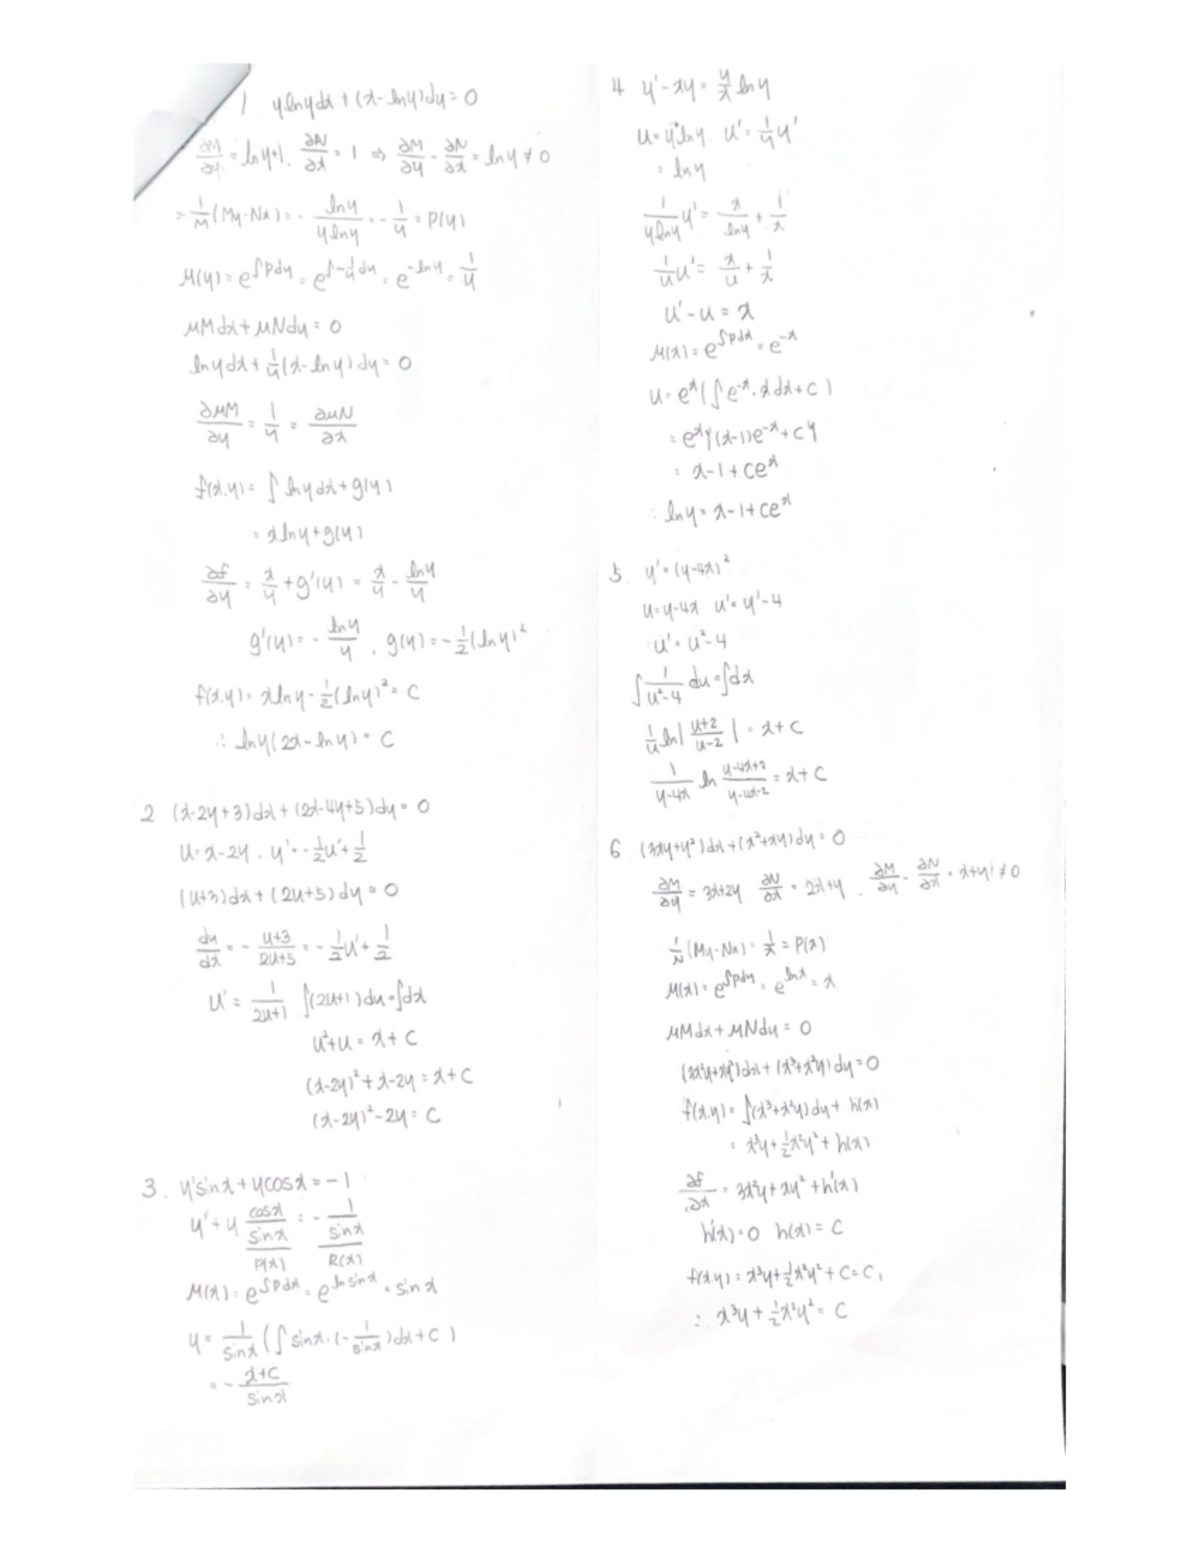 1. ylnydx + (x-lny)dy = 0
∂M/∂y = lny+1, ∂N/∂x = 1 ⇒ ∂M/∂y - ∂N/∂x = lny ≠ 0
= 1/M (My-Nx) = - lny/ylny = - 1/y = P(y)
M(y) = e^∫Pdy = e^∫-1/y dy = e^-lny = 1/y
μMdx + μNdy = 0
lnydx + 1/y (x-lny)dy = 0
∂μM/∂y = 1/y = ∂μN/∂x
f(x.y) = ∫lnydx + g(y)
= xlny + g(y)
∂f/∂y = x/y + g'(y) = x/y - lny/y
g'(y) = - lny/y , g(y) = - 1/2 (lny)²
f(x.y) = xlny - 1/2 (lny)² = C
∴ lny(2x-lny) = C
2 (x-2y+3)dx + (2x-4y+5)dy = 0
u = x-2y . y' = - 1/2 u' + 1/2
(u+3)dx + (2u+5)dy = 0
dy/dx = - u+3/2u+5 = - 1/2 u' + 1/2
u' = 1/2u+1 ∫(2u+1)du = ∫dx
u²+u = x+C
(x-2y)² + x-2y = x+C
(x-2y)² - 2y = C
3. y'sinx + ycosx = -1
y' + y cosx/sinx = - 1/sinx
P(x) R(x)
M(x) = e^∫Pdx = e^lnsinx = sinx
y = 1/sinx (∫sinx·(- 1/sinx)dx + C)
= - x+C/sinx
4 y' - xy = y/x lny
u = y°lny. u' = 1/y y'
= lny
1/ylny y' = x/lny + 1/x
1/u u' = x/u + 1/x
u' - u = x
M(x) = e^∫Pdx = e^-x
u = e^x (∫e^-x · xdx + C)
= e^x {(x-1)e^-x + C}
= x-1+Ce^x
∴ lny = x-1+Ce^x
5. y' = (y-4x)²
u = y-4x u' = y'-4
u' = u²-4
∫ 1/u²-4 du = ∫dx
1/u ln| u+2/u-2 | = x+C
1/y-4x ln y-4x+2/y-4x-2 = x+C
6. (3xy+y²)dx + (x²+xy)dy = 0
∂M/∂y = 3x+2y ∂N/∂x = 2x+y . ∂M/∂y - ∂N/∂x = x+y ≠ 0
1/N (My-Nx) = 1/x = P(x)
M(x) = e^∫Pdy = e^lnx = x
μMdx + μNdy = 0
(3x²y+xy²)dx + (x³+x²y)dy = 0
f(x.y) = ∫(x³+x²y)dy + h(x)
= x³y + 1/2 x²y² + h(x)
∂f/∂x = 3x²y + xy² + h'(x)
h'(x) = 0 h(x) = C
f(x.y) = x³y + 1/2 x²y² + C = C₁
∴ x³y + 1/2 x²y² = C